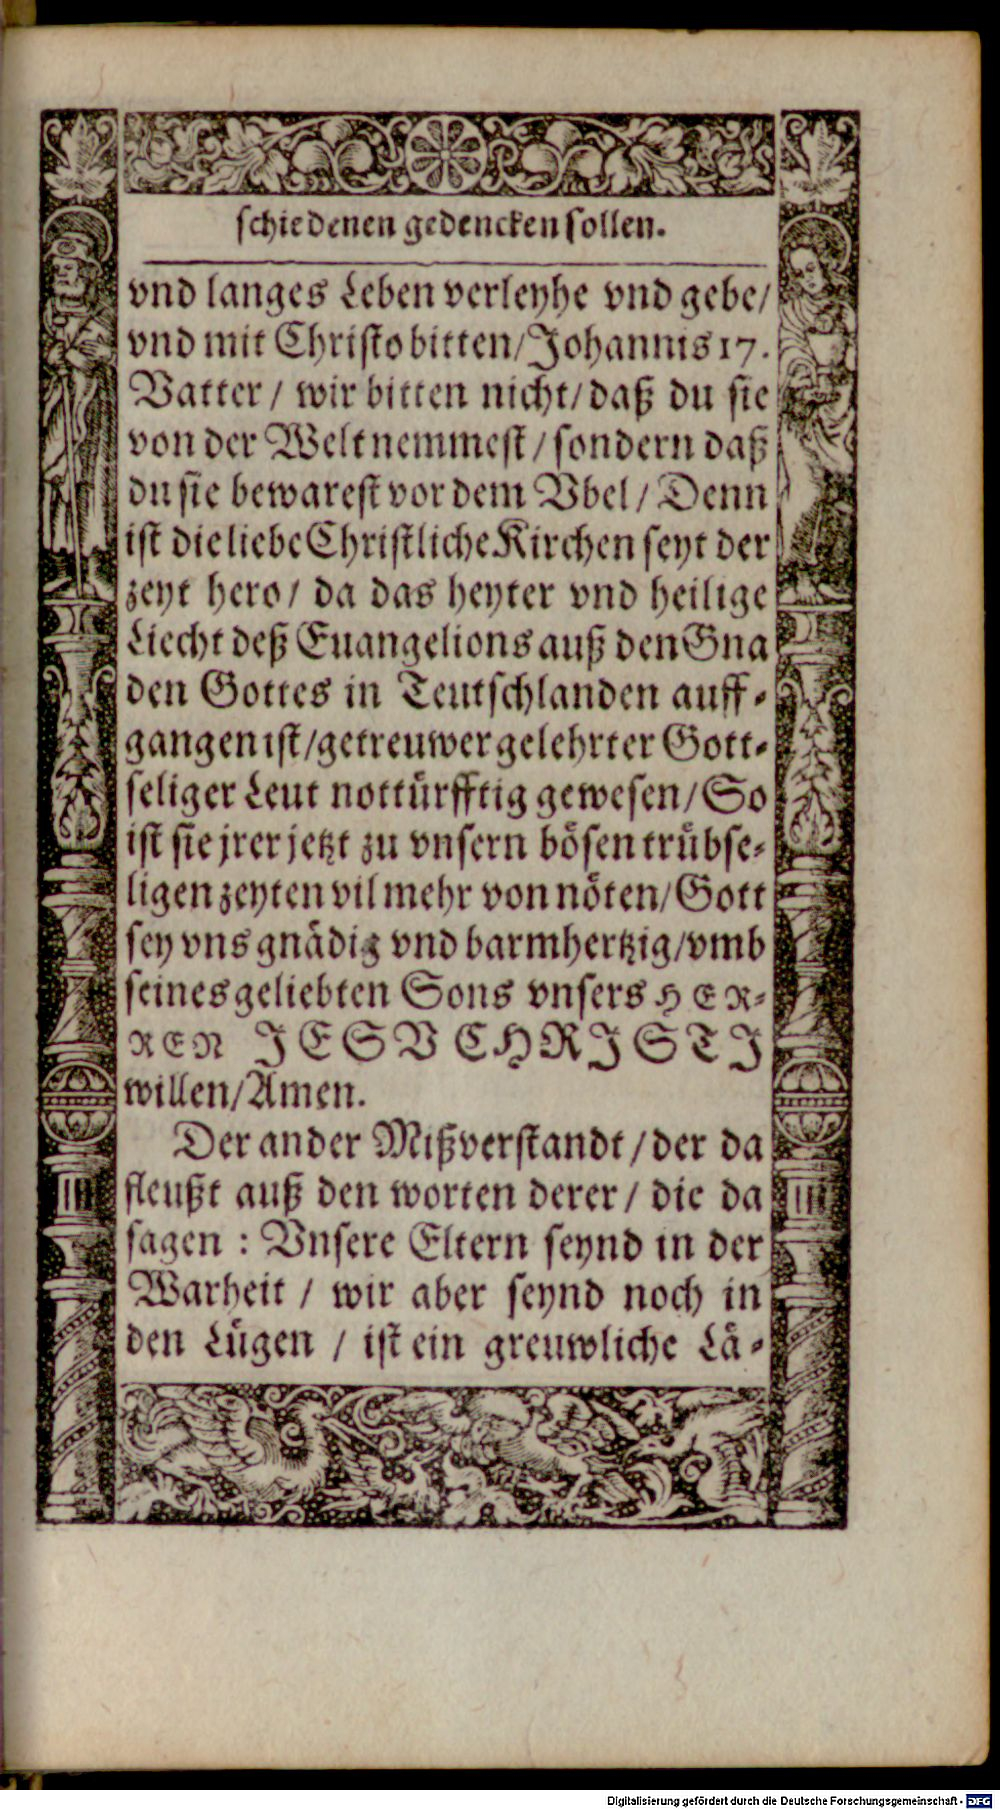 schiedenen gedencken sollen.
vnd langes Leben verleyhe vnd gebe/
vnd mit Christo bitten/Johannis 17.
Vatter / wir bitten nicht/daß du sie
von der Welt nemmest / sondern daß
du sie bewarest vor dem Vbel / Denn
ist die liebe Christliche Kirchen seyt der
zeyt hero / da das heyter vnd heilige
Liecht deß Euangelions auß den Gna
den Gottes in Teutschlanden auff-
gangen ist/getreuwer gelehrter Gott-
seliger Leut nottürfftig gewesen/So
ist sie jrer jetzt zu vnsern bösen trübse-
ligen zeyten vil mehr von nöten/Gott
sey vns gnädig vnd barmhertzig/vmb
seines geliebten Sons vnsers HER-
REN JESV CHRISTJ
willen/Amen.
Der ander Mißverstandt / der da
fleußt auß den worten derer / die da
sagen : Vnsere Eltern seynd in der
Warheit / wir aber seynd noch in
den Lügen / ist ein greuwliche Lä-
Digitalisierung gefördert durch die Deutsche Forschungsgemeinschaft - DFG